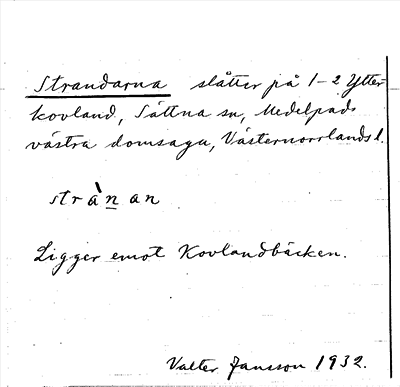 Strandarna slåtter på 1-2 Ytter-
kovland, Sättna sn, Medelpads
västra domsaga, Västernorrlands l.
strànan
Ligger emot Kovlandbäcken.
Valter Jansson 1932.